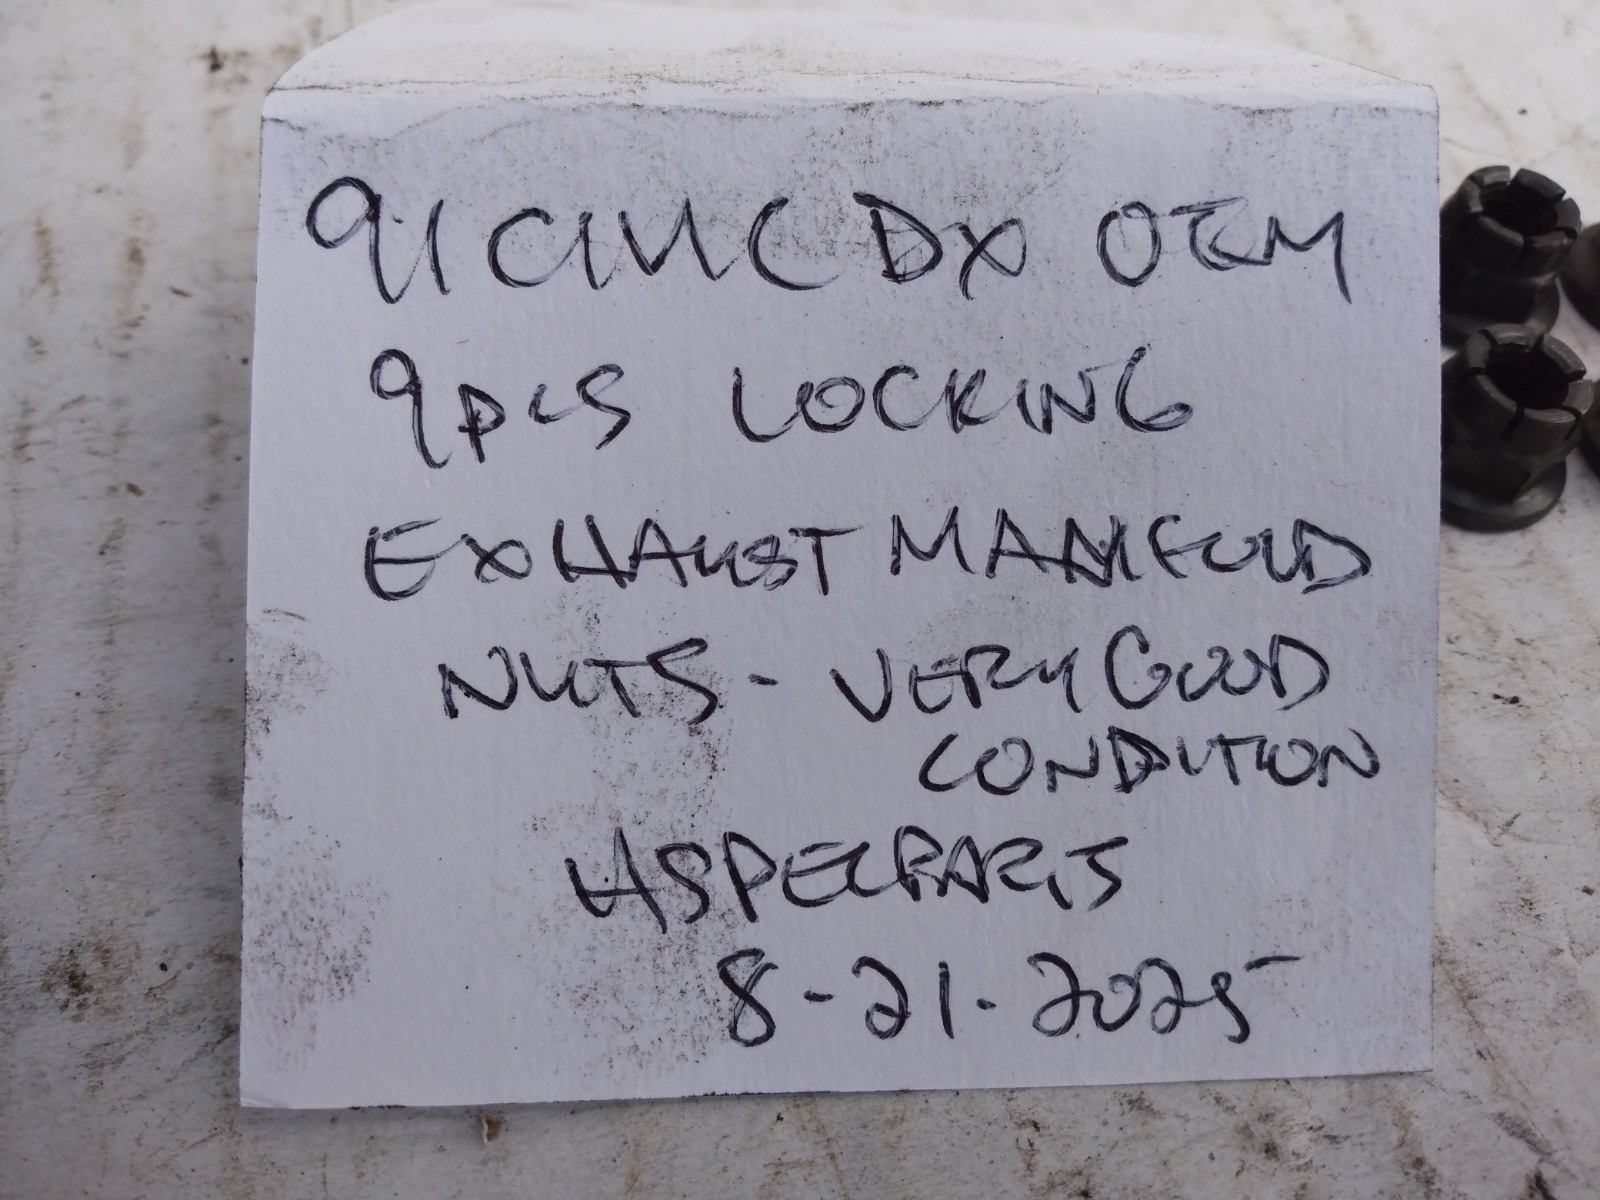 91 CIVIC DX OEM
9 PCS LOCKING
EXHAUST MANIFOLD
NUTS - VERY GOOD
CONDITION
HSPECPARTS
8-21-2025